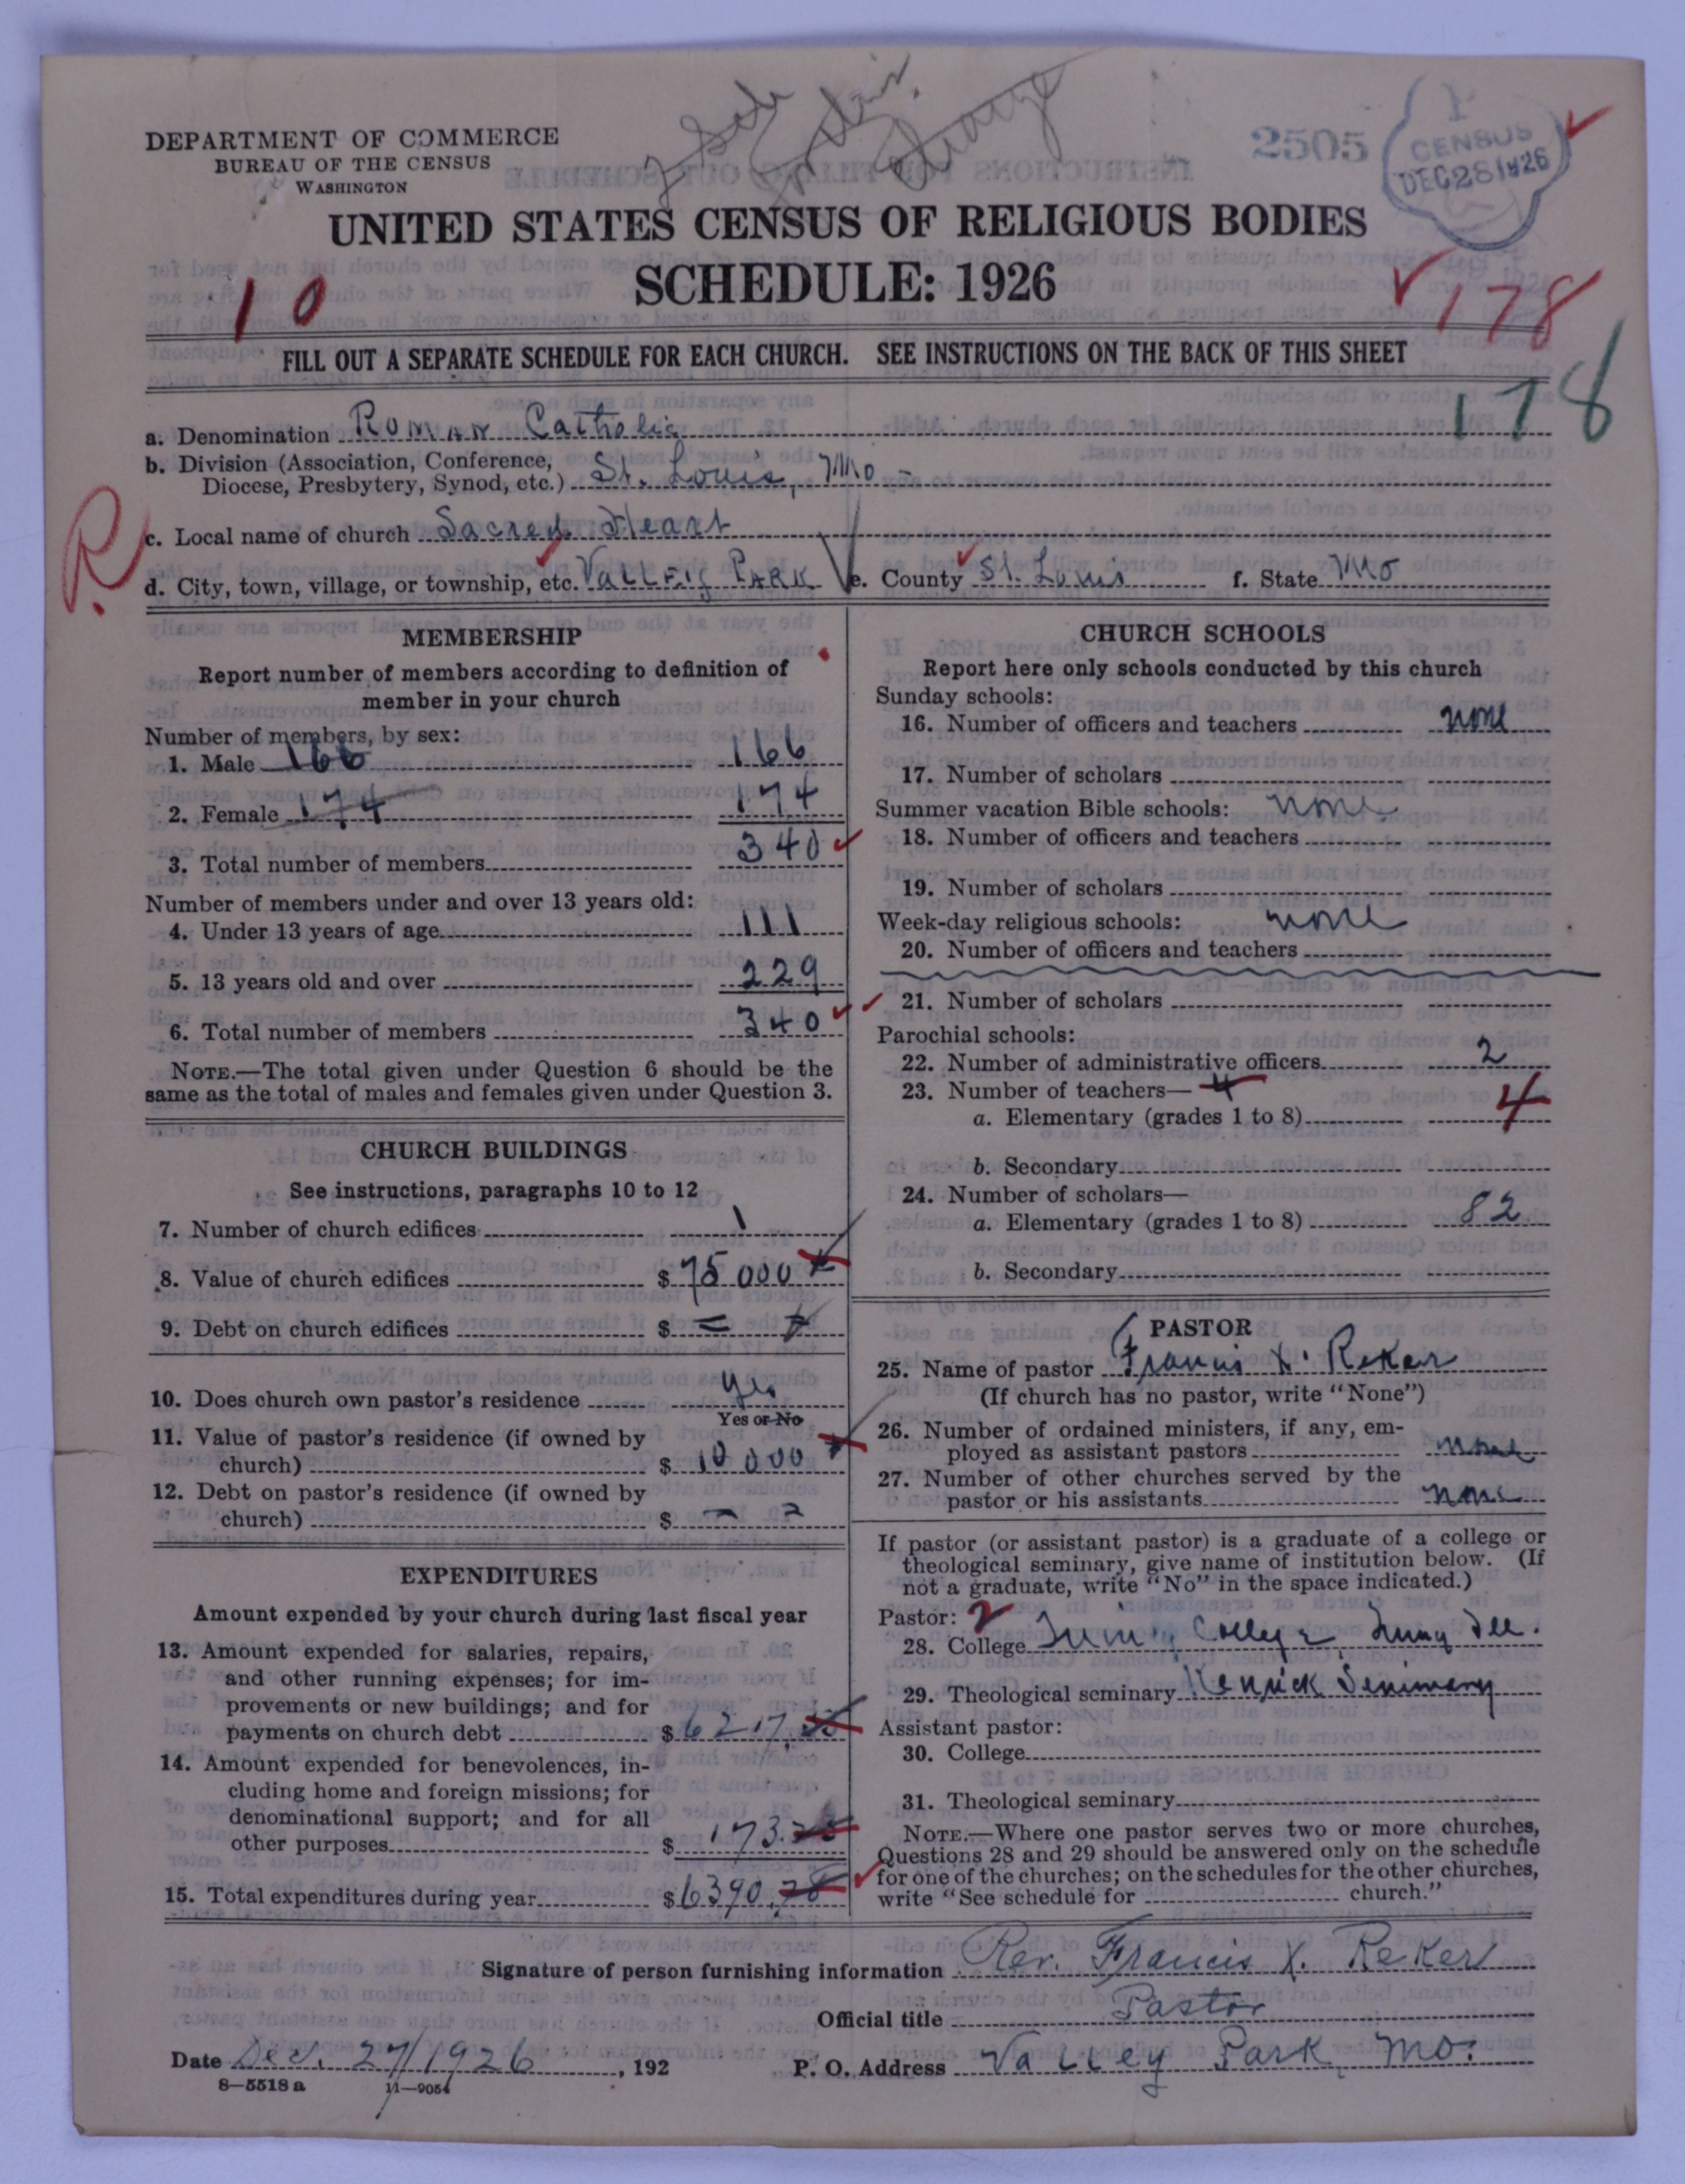 DEPARTMENT OF COMMERCE
BUREAU OF THE CENSUS
WASHINGTON
2505
CENSUS
DEC 28 1926
UNITED STATES CENSUS OF RELIGIOUS BODIES
SCHEDULE: 1926
10
178
FILL OUT A SEPARATE SCHEDULE FOR EACH CHURCH. SEE INSTRUCTIONS ON THE BACK OF THIS SHEET
178
a. Denomination Roman Catholic
b. Division (Association, Conference,
Diocese, Presbytery, Synod, etc.) St. Louis, Mo
R
c. Local name of church Sacred Heart
d. City, town, village, or township, etc. Valley Park e. County St. Louis f. State Mo
MEMBERSHIP
Report number of members according to definition of
member in your church
Number of members, by sex:
1. Male 166 166
2. Female 174 174
3. Total number of members 340
Number of members under and over 13 years old:
4. Under 13 years of age 111
5. 13 years old and over 229
6. Total number of members 340
NOTE.—The total given under Question 6 should be the
same as the total of males and females given under Question 3.
CHURCH BUILDINGS
See instructions, paragraphs 10 to 12
7. Number of church edifices 1
8. Value of church edifices $ 75 000
9. Debt on church edifices $
10. Does church own pastor's residence yes
Yes or No
11. Value of pastor's residence (if owned by
church) $ 10 000
12. Debt on pastor's residence (if owned by
church) $
EXPENDITURES
Amount expended by your church during last fiscal year
13. Amount expended for salaries, repairs,
and other running expenses; for im-
provements or new buildings; and for
payments on church debt $ 6217.
14. Amount expended for benevolences, in-
cluding home and foreign missions; for
denominational support; and for all
other purposes $ 173.
15. Total expenditures during year $ 6390.78
CHURCH SCHOOLS
Report here only schools conducted by this church
Sunday schools:
16. Number of officers and teachers none
17. Number of scholars
Summer vacation Bible schools: none
18. Number of officers and teachers
19. Number of scholars
Week-day religious schools: none
20. Number of officers and teachers
21. Number of scholars
Parochial schools:
22. Number of administrative officers 2
23. Number of teachers— 4
a. Elementary (grades 1 to 8) 4
b. Secondary
24. Number of scholars—
a. Elementary (grades 1 to 8) 82
b. Secondary
PASTOR
25. Name of pastor Francis X. Reker
(If church has no pastor, write "None")
26. Number of ordained ministers, if any, em-
ployed as assistant pastors none
27. Number of other churches served by the
pastor or his assistants none
If pastor (or assistant pastor) is a graduate of a college or
theological seminary, give name of institution below. (If
not a graduate, write "No" in the space indicated.)
Pastor: 2
28. College Quincy College, Quincy Ill.
29. Theological seminary Kenrick Seminary
Assistant pastor:
30. College
31. Theological seminary
NOTE.—Where one pastor serves two or more churches,
Questions 28 and 29 should be answered only on the schedule
for one of the churches; on the schedules for the other churches,
write "See schedule for church."
Signature of person furnishing information Rev. Francis X. Reker
Official title Pastor
Date Dec. 27/1926, 192 P. O. Address Valley Park, Mo.
8—5518 a 11—9054